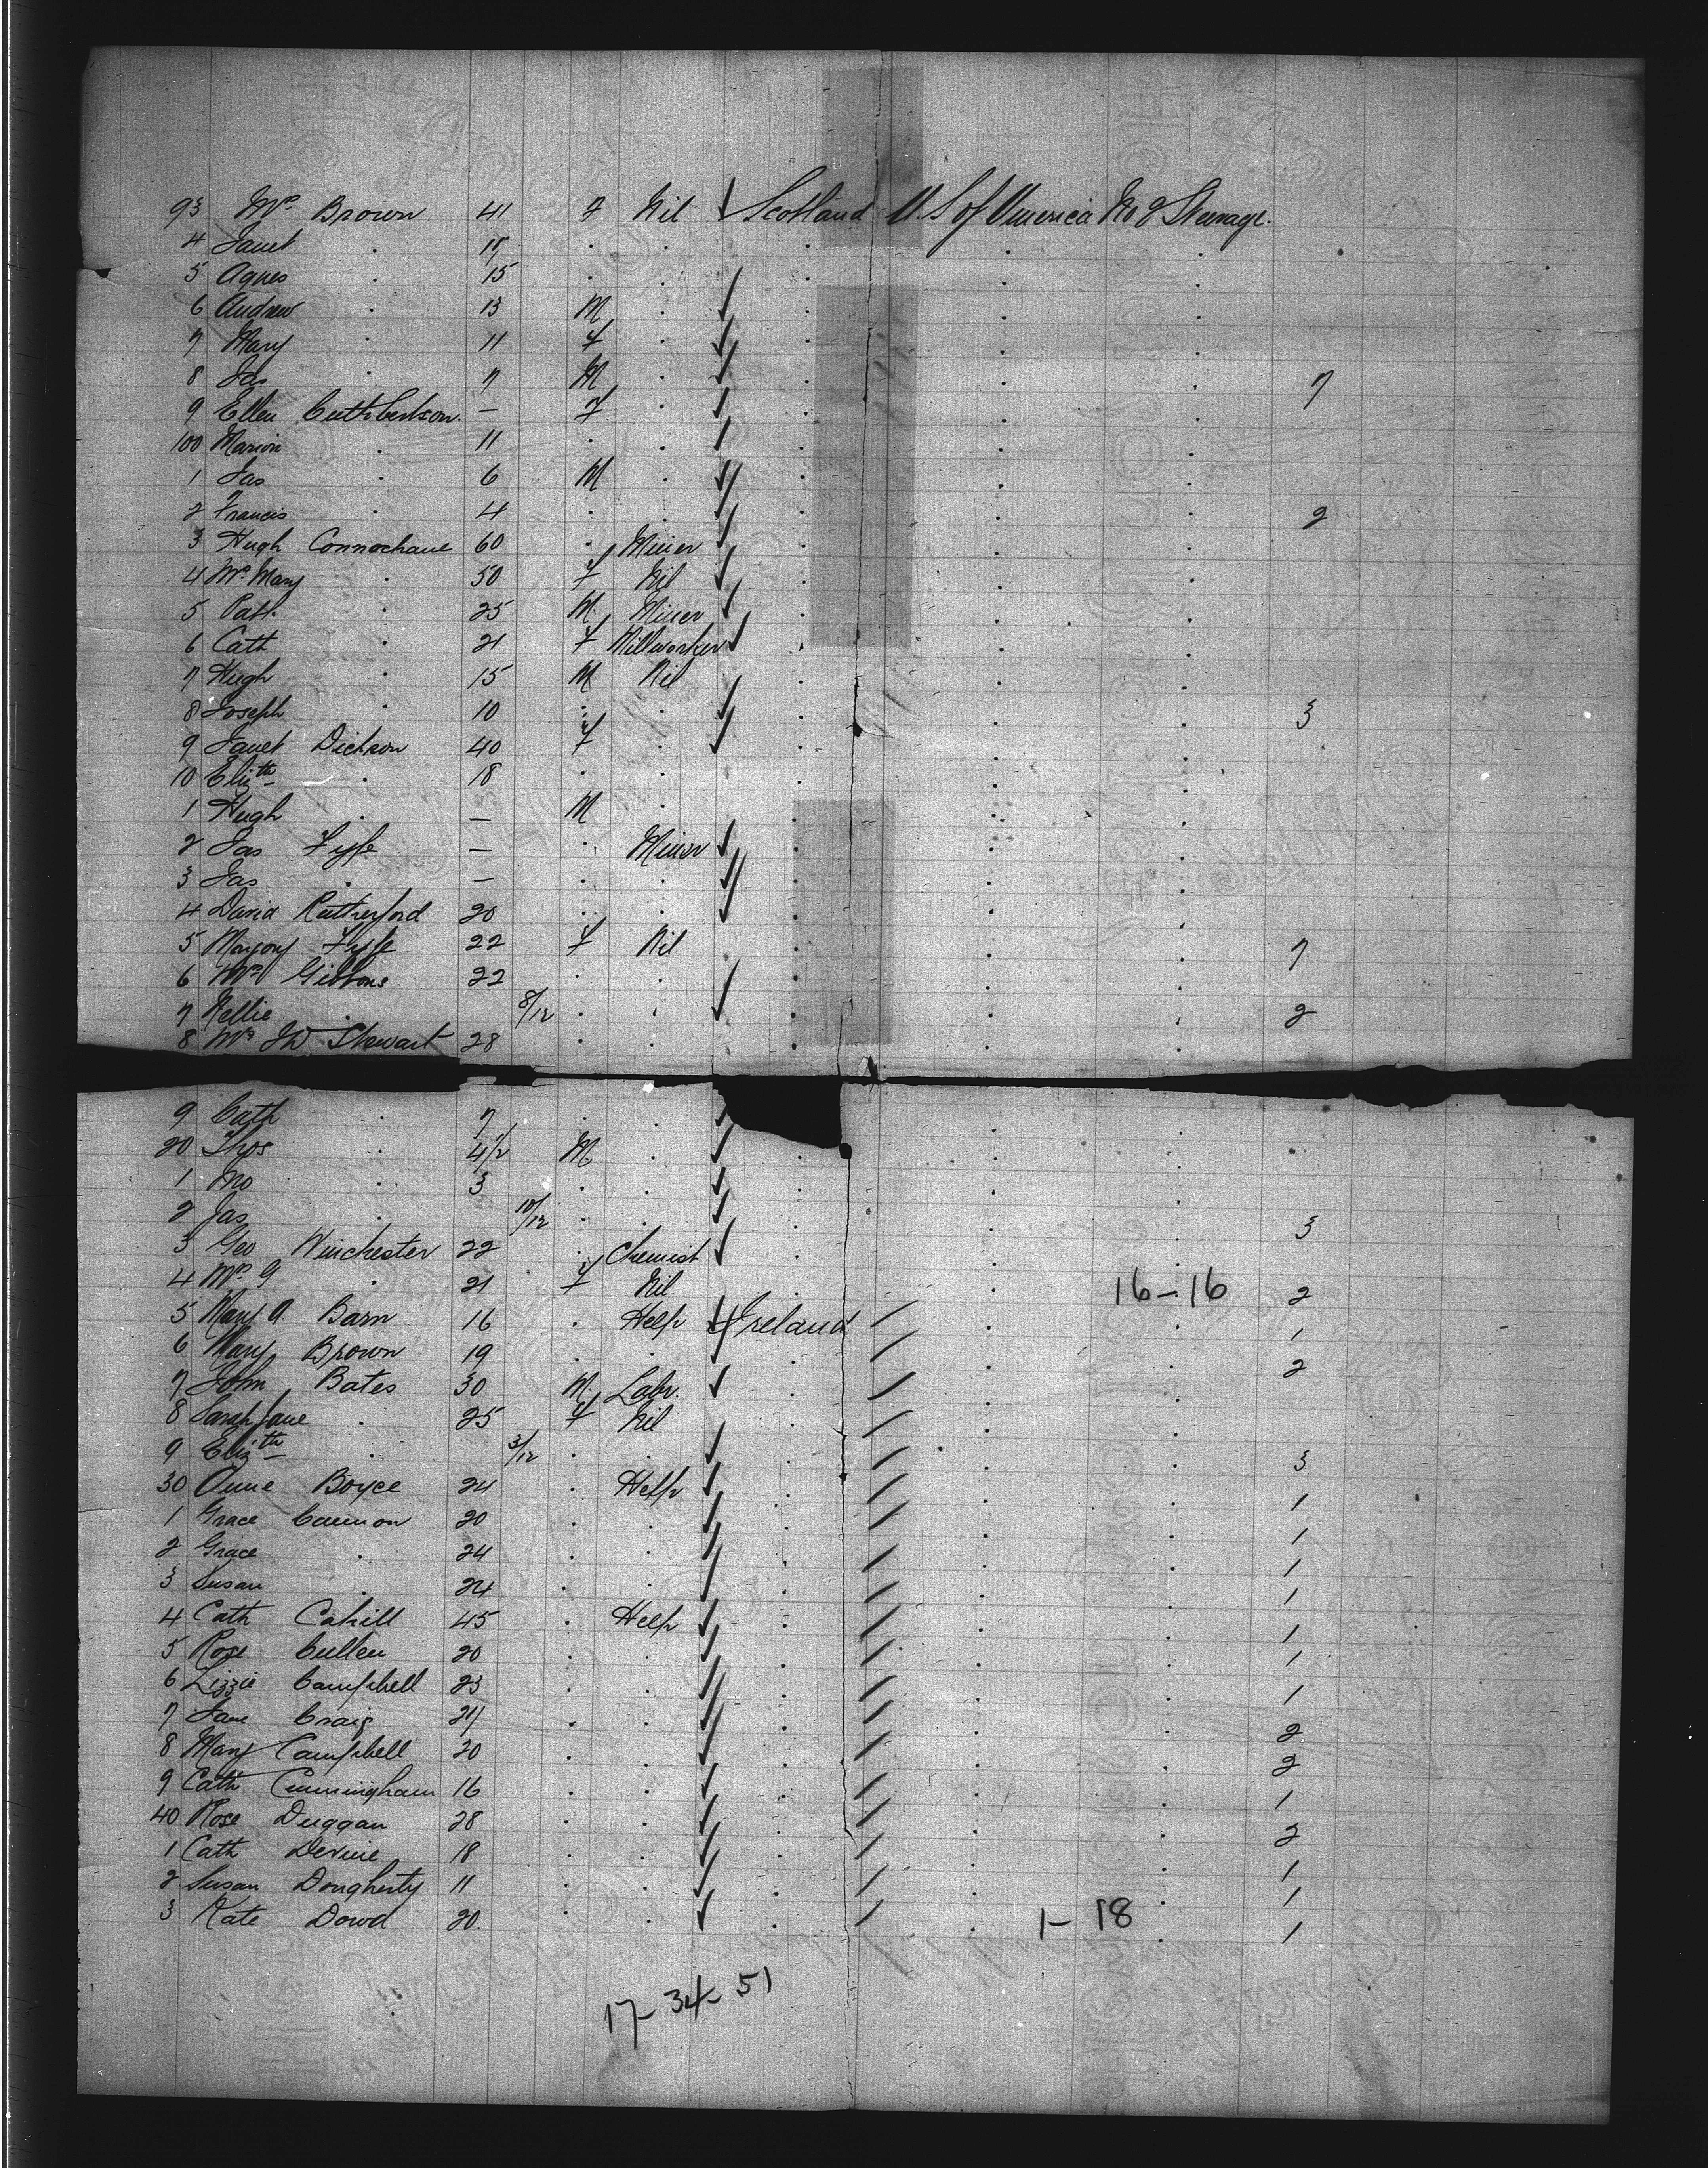 93 Mrs Brown 41 F Nil Scotland U.S of America No 2 Steerage.
4 Janet . 17 . .
5 Agnes . 15 . .
6 Andrew . 13 M .
7 Mary . 11 F .
8 Jas . 7 M . 7
9 Ellen Cuthbertson. — F .
100 Marion . 11 . .
1 Jas . 6 M .
2 Francis . 4 . . 2
3 Hugh Connochane 60 . Miner
4 Mrs Mary . 50 F Nil
5 Patk . 25 M Miner
6 Cath . 21 F Millworker
7 Hugh . 15 M Nil
8 Joseph . 10 . . 3
9 Janet Dickson 40 F .
10 Elizth . 18 . .
1 Hugh . — M .
2 Jas Fyfe — . Miner
3 Jas . — . .
4 David Rutherford 20 . .
5 Marjory Fyfe 22 F Nil 7
6 Mrs Gibbons 22 . .
7 Nellie . 8/12 . . 2
8 Mrs JW Stewart 28 . .
9 Cath . 7 . .
20 Thos . 4 1/2 M .
1 Jno . 3 . .
2 Jas . 10/12 . . 3
3 Geo Winchester 22 . Chemist
4 Mrs G . 21 F Nil 16-16 2
5 Mary A. Barn 16 . Help Ireland 1
6 Mary Brown 19 . . 2
7 John Bates 30 M. Labr.
8 Sarah Jane . 25 F Nil
9 Elizth . 3/12 . . 3
30 Anne Boyce 24 . Help 1
1 Grace Cannon 20 . . 1
2 Grace . 24 . . 1
3 Susan . 24 . . 1
4 Cath Cahill 45 . Help 1
5 Rose Cullen 20 . . 1
6 Lizzie Campbell 23 . . 1
7 Jane Craig 21 . . 2
8 Mary Campbell 20 . . 2
9 Cath Cunningham 16 . . 1
40 Rose Duggan 28 . . 2
1 Cath Devine 18 . . 1
2 Susan Dougherty 11 . . 1
3 Kate Dowd 20. . . 1-18 1
17-34-51